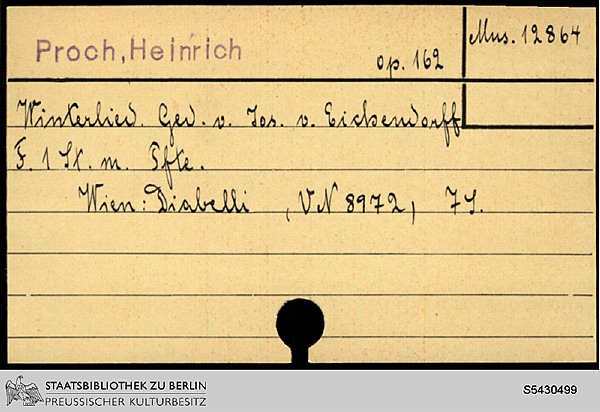 Proch, Heinrich
op. 162
Mus. 12864
Winterlied. Ged. v. Jos. v. Eichendorff
F. 1 St. m. Pfte.
Wien: Diabelli , VN 8972, 7 S.
STAATSBIBLIOTHEK ZU BERLIN
PREUSSISCHER KULTURBESITZ
S5430499